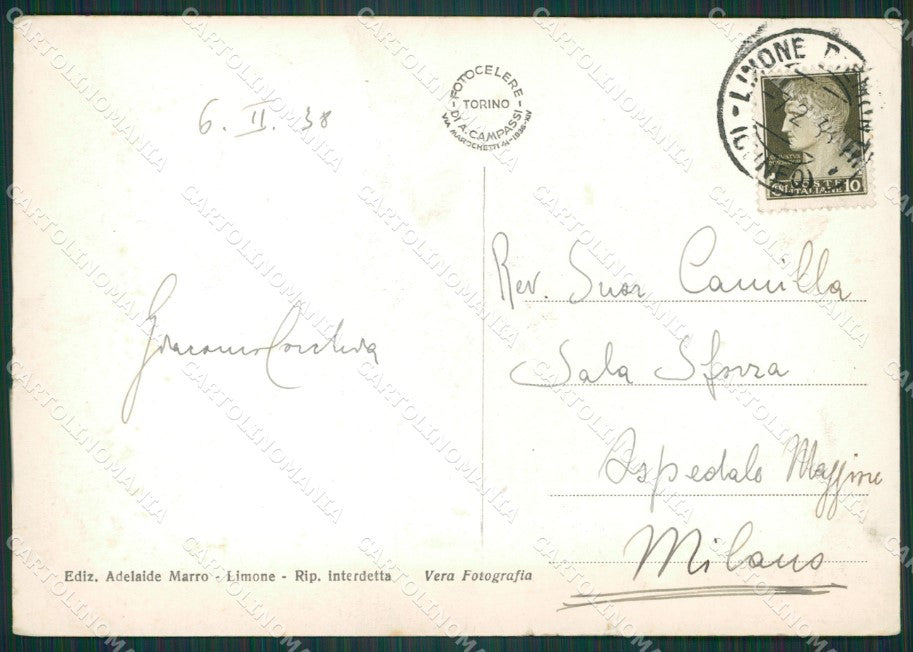 6. II. 38
FOTOCELERE
TORINO
DI A. CAMPASSI
VIA MAROCHETTI 41-1936-XIV
LIMONE
(CUNEO)
POSTE
ITALIANE 10
Rev. Suor Camilla
Sala Sforza
Ospedale Maggiore
Milano
Giacomo
Ediz. Adelaide Marro - Limone - Rip. interdetta Vera Fotografia
CARTOLINOMANIA